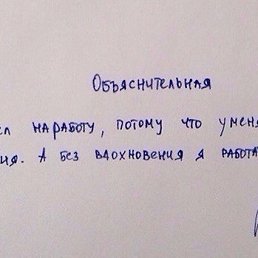 Объяснительная
наработу, потому что уменя
А без вдохновения я